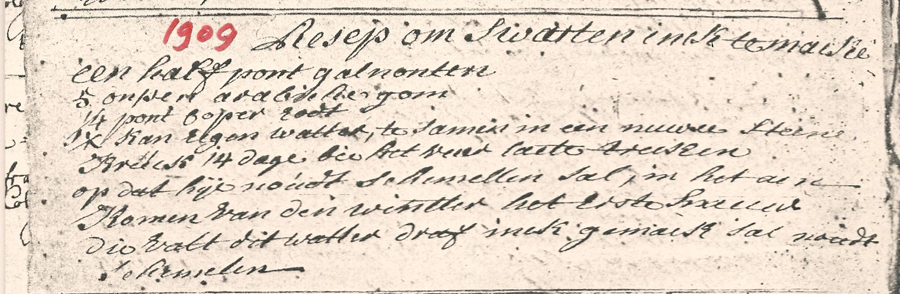 1909 Resep om Swarten inck te maeke
een half pont galnonten
5 onsen arabische gom
1/4 pont coper root
kan regen watter, te samen in een nuwe steene
Kruick 14 dage bie het vuer laate trecken
op dat hije noeidt schimellen sal, in het aen
Komen van den wintter het erste snieuw
die valt dit watter draf inck gemackt sal noeidt
schimelen